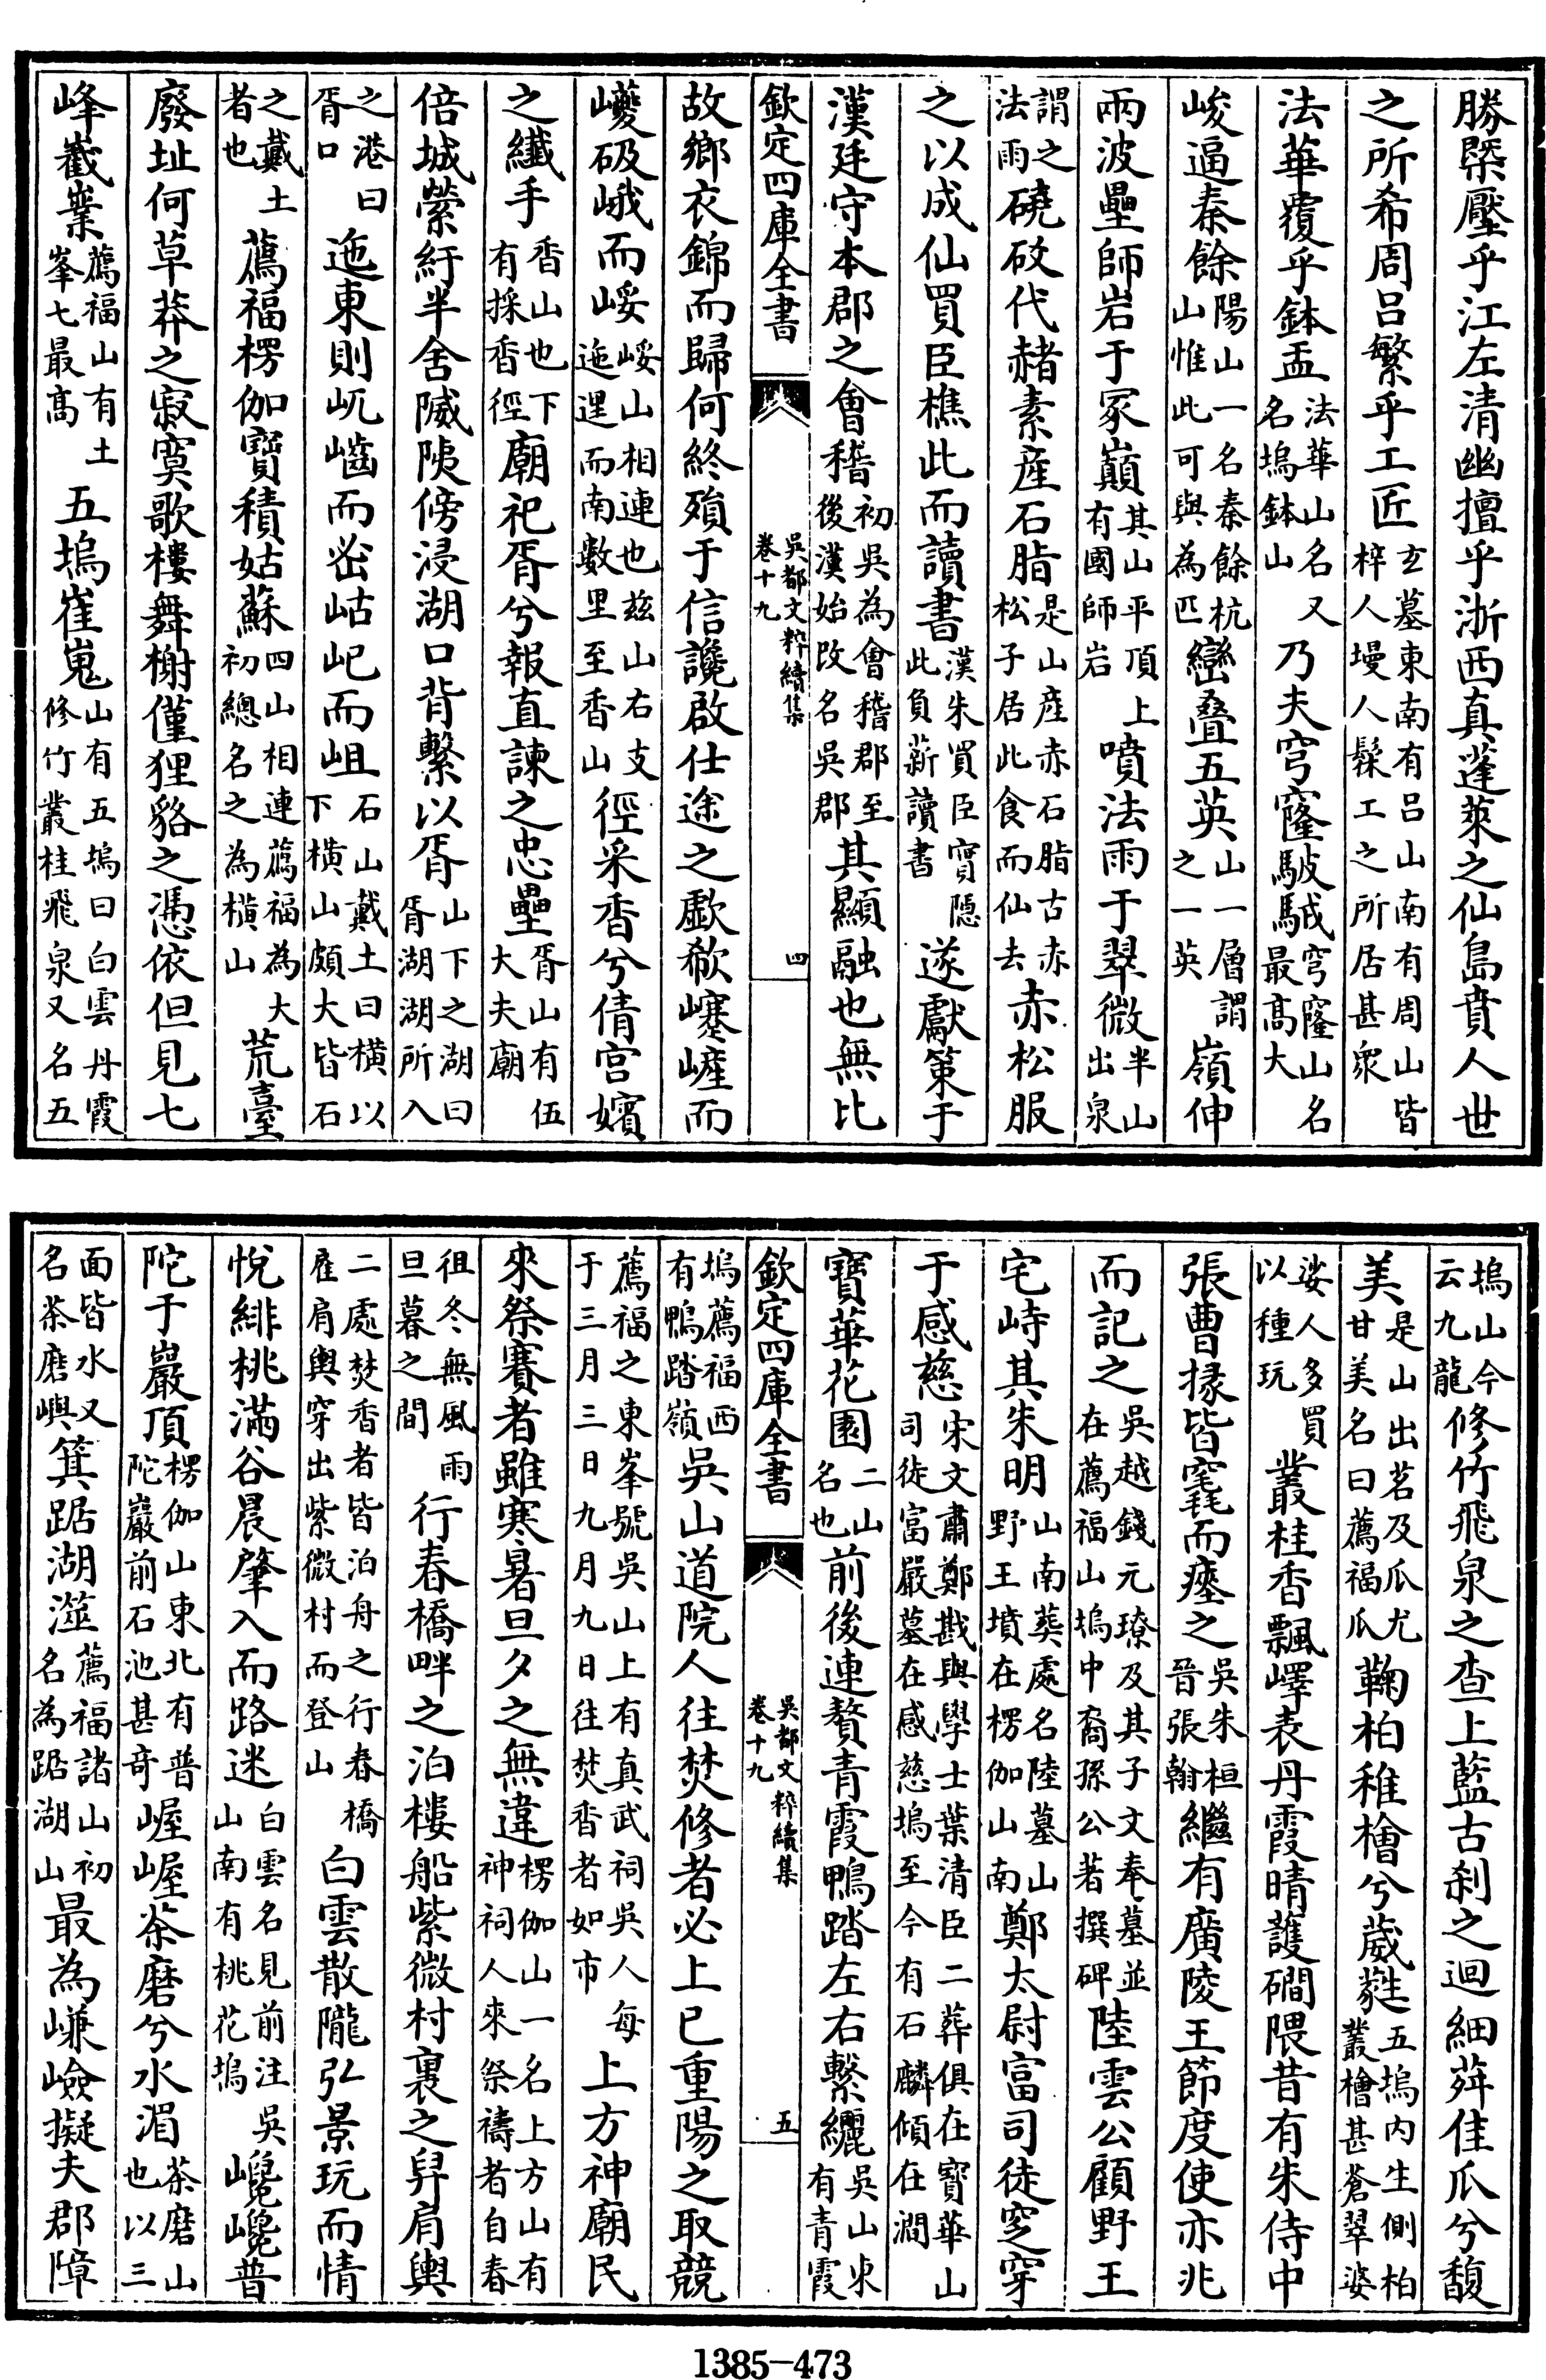 勝槩壓乎江左清幽擅乎浙西真蓬萊之仙島賁人世
之所希周呂繁乎工匠玄墓東南有呂山南有周山皆梓人墁人髹工之所居甚衆
法華覆乎鉢盂法華山名又名塢鉢山乃夫穹窿駊䮂穹窿山名最高大
峻逼秦餘陽山一名秦餘杭山惟此可與為匹巒疊五英山一層謂之一英嶺伸
兩波壘師岩于冢巔其山平頂上有國師岩噴法雨于翠微半山出泉
謂之法雨磽㱾代赭素産石脂是山産赤石脂古赤松子居此食而仙去赤松服
之以成仙買臣樵此而讀書漢朱買臣實隠此負薪讀書遂獻策于
漢廷守本郡之會稽初吳為會稽郡至後漢始改名吳郡其顯融也無比
欽定四庫全書 吳都文粹續集卷十九 四
故鄉衣錦而歸何終殞于信讒啟仕途之歔欷㠔嵼而
巙砐峨而崾崾山相連也茲山右支迤逞而南數里至香山徑采香兮倩宫嬪
之纖手香山也下有採香徑廟祀胥兮報直諫之忠壘胥山有伍大夫廟
倍城縈紆半舍隇陝傍浸湖口背繫以胥山下之湖曰胥湖湖所入
之港曰胥口迤東則屼崓而峃岵屺而岨石山戴土曰横以下横山頗大皆石
之戴土者也薦福楞伽寳積姑蘇四山相連薦福為大初總名之為横山荒臺
廢址何草莽之寂寞歌樓舞榭僅狸貉之憑依但見七
峰巀嶪薦福山有土峯七最高五塢崔嵬山有五塢曰白雲丹霞修竹叢桂飛泉又名五
塢山今云九龍修竹飛泉之查上藍古刹之迴細荈佳瓜兮馥
美是山出茗及瓜尤甘美名曰薦福瓜鞠柏稚檜兮葳蕤五塢内生側柏叢檜甚蒼翠婆
娑人多買以種玩叢桂香飄嶧表丹霞晴護磵隈昔有朱侍中
張曹掾皆窀而瘞之吳朱桓晉張翰繼有廣陵王節度使亦兆
而記之吳越錢元璙及其子文奉墓並在薦福山塢中裔孫公著撰碑陸雲公顧野王
宅峙其朱明山南葬處名陸墓山野王墳在楞伽山南鄭太尉富司徒窆穿
于感慈宋文肅鄭戡與學士葉清臣二葬俱在寶華山司徒富嚴墓在感慈塢至今有石麟傾在澗
寶華花園二山名也前後連贅青霞鴨踏左右繫纚吳山東有青霞
欽定四庫全書 吳都文粹續集卷十九 五
塢薦福西有鴨踏嶺吳山道院人往焚修者必上巳重陽之取競
薦福之東峯號吳山上有真武祠吳人每于三月三日九月九日往焚香者如市上方神廟民
來祭賽者雖寒暑旦夕之無違楞伽山一名上方山有神祠人來祭禱者自春
徂冬無風雨旦暮之間行春橋畔之泊樓船紫微村裏之舁肩輿
二處焚香者皆泊舟之行春橋雇肩輿穿出紫微村而登山白雲散隴弘景玩而情
悅緋桃滿谷晨肇入而路迷白雲名見前注吳山南有桃花塢巉巉普
陀于巖頂楞伽山東北有普陀巖前石池甚奇崌崌茶磨兮水湄茶磨山也以三
面皆水又名茶磨嶼箕踞湖澨薦福諸山初名為踞湖山最為嵰嶮擬夫郡障
1385-473